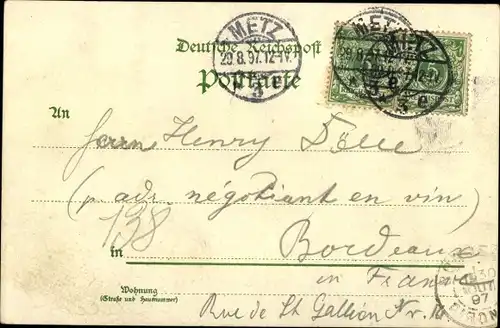 METZ
29.8.97.12-1V.
3
Deutsche Reichspost
Postkarte
METZ
An
Herrn Henry Dölle
(p. adr. négotiant en vin)
138
in Bordeaux
in France
Wohnung
(Straße und Hausnummer)
Rue de St Gallion Nr.
97